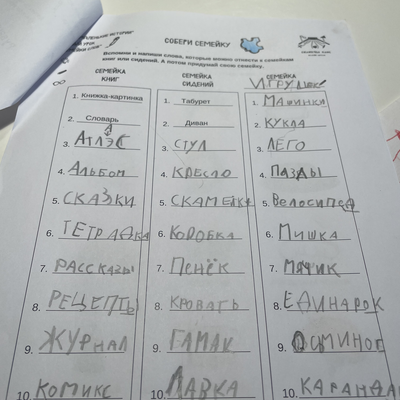 СОБЕРИ СЕМЕЙКУ
Вспомни и напиши слова, которые можно отнести к семейкам
книг или сидений. А потом придумай свою семейку.
СЕМЕЙКА КНИГ
1. Книжка-картинка
2. Словарь
3. АТЛАС
4. АЛЬБОМ
5. СКАЗКИ
6. ТЕТРАДКА
7. РАССКАЗЫ
8. РЕЦЕПТЫ
9. ЖУРНАЛ
10. КОМИКС
СЕМЕЙКА СИДЕНИЙ
1. Табурет
2. Диван
3. СТУЛ
4. КРЕСЛО
5. СКАМЕЙКА
6. КОРОБКА
7. ПЕНЁК
8. КРОВАТЬ
9. ГАМАК
10. ЛАВКА
СЕМЕЙКА ИГРУШЕК
1. МАШИНКИ
2. КУКЛА
3. ЛЕГО
4. ПАЗЛЫ
5. ВЕЛОСИПЕД
6. МИШКА
7. МЯЧИК
8. ЕДИНАРОК
9. ДОМИНОГ
10. КАРАНДА